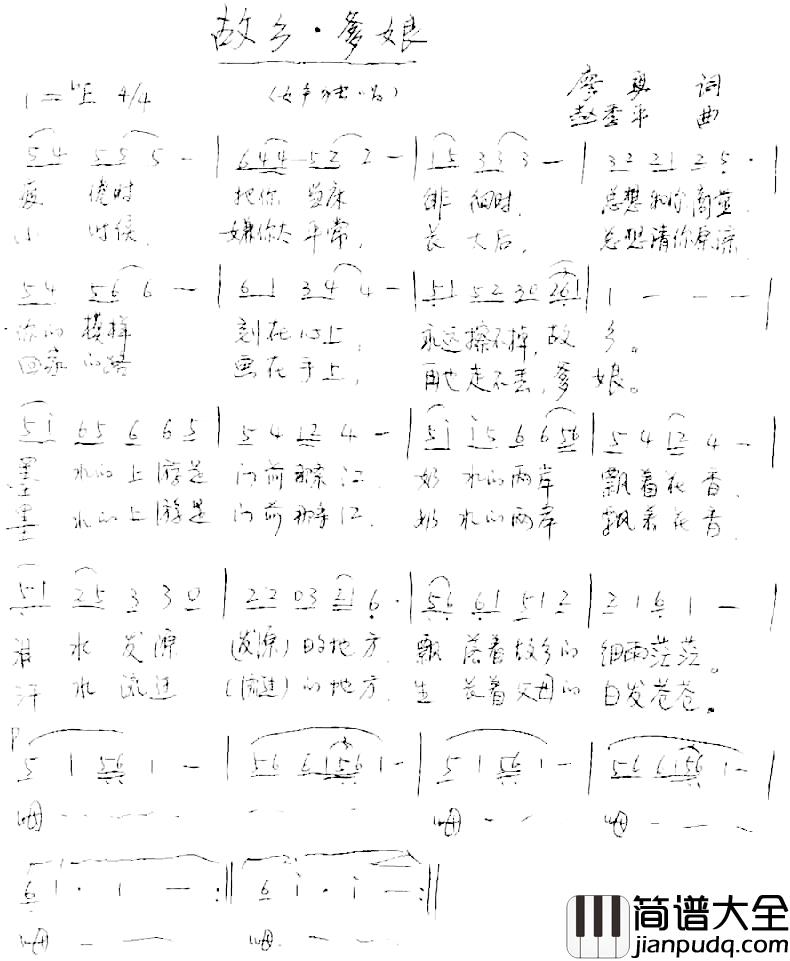 故乡·爹娘
1=♭E 4/4
(女声独唱)
廖勇 词
赵季平 曲
5 4 5 5 5 - | 6 4 4 5 2 2 - | 1 5 3 3 3 - | 3 2 2 1 2 5 · |
时 把你当床 时 总想和你商量
小时候 嫌你太平常 长大后 总想请你原谅
5 4 5 6 6 - | 6 1 3 4 4 - | 5 1 5 2 3 0 2 6 1 | 1 - - - |
你的模样 刻在心上 永远擦不掉,故乡。
回家的路 画在手上, 再也走不丢,爹娘。
5 i 6 5 6 6 5 | 5 4 1 2 4 - | 5 i i 5 6 6 5 6 | 5 4 1 2 4 - |
墨水的上游是 门前那条江 奶水的两岸 飘着花香
墨水的上游是 门前那条江 奶水的两岸 飘着花香
5 1 2 5 3 3 0 | 2 2 0 3 2 1 6 · | 5 6 6 1 5 1 2 | 2 1 6 1 - |
泪水发源 (发源)的地方 飘落着故乡的 细雨茫茫。
汗水流进 (流进)的地方 生长着父母的 白发苍苍。
p
5 1 5 6 1 - | 5 6 6 1 5 6 1 - | 5 1 5 6 1 - | 5 6 6 1 5 6 1 - |
6 1 · 1 - :|| 6 i · i - :||
简谱大全
jianpudq.com